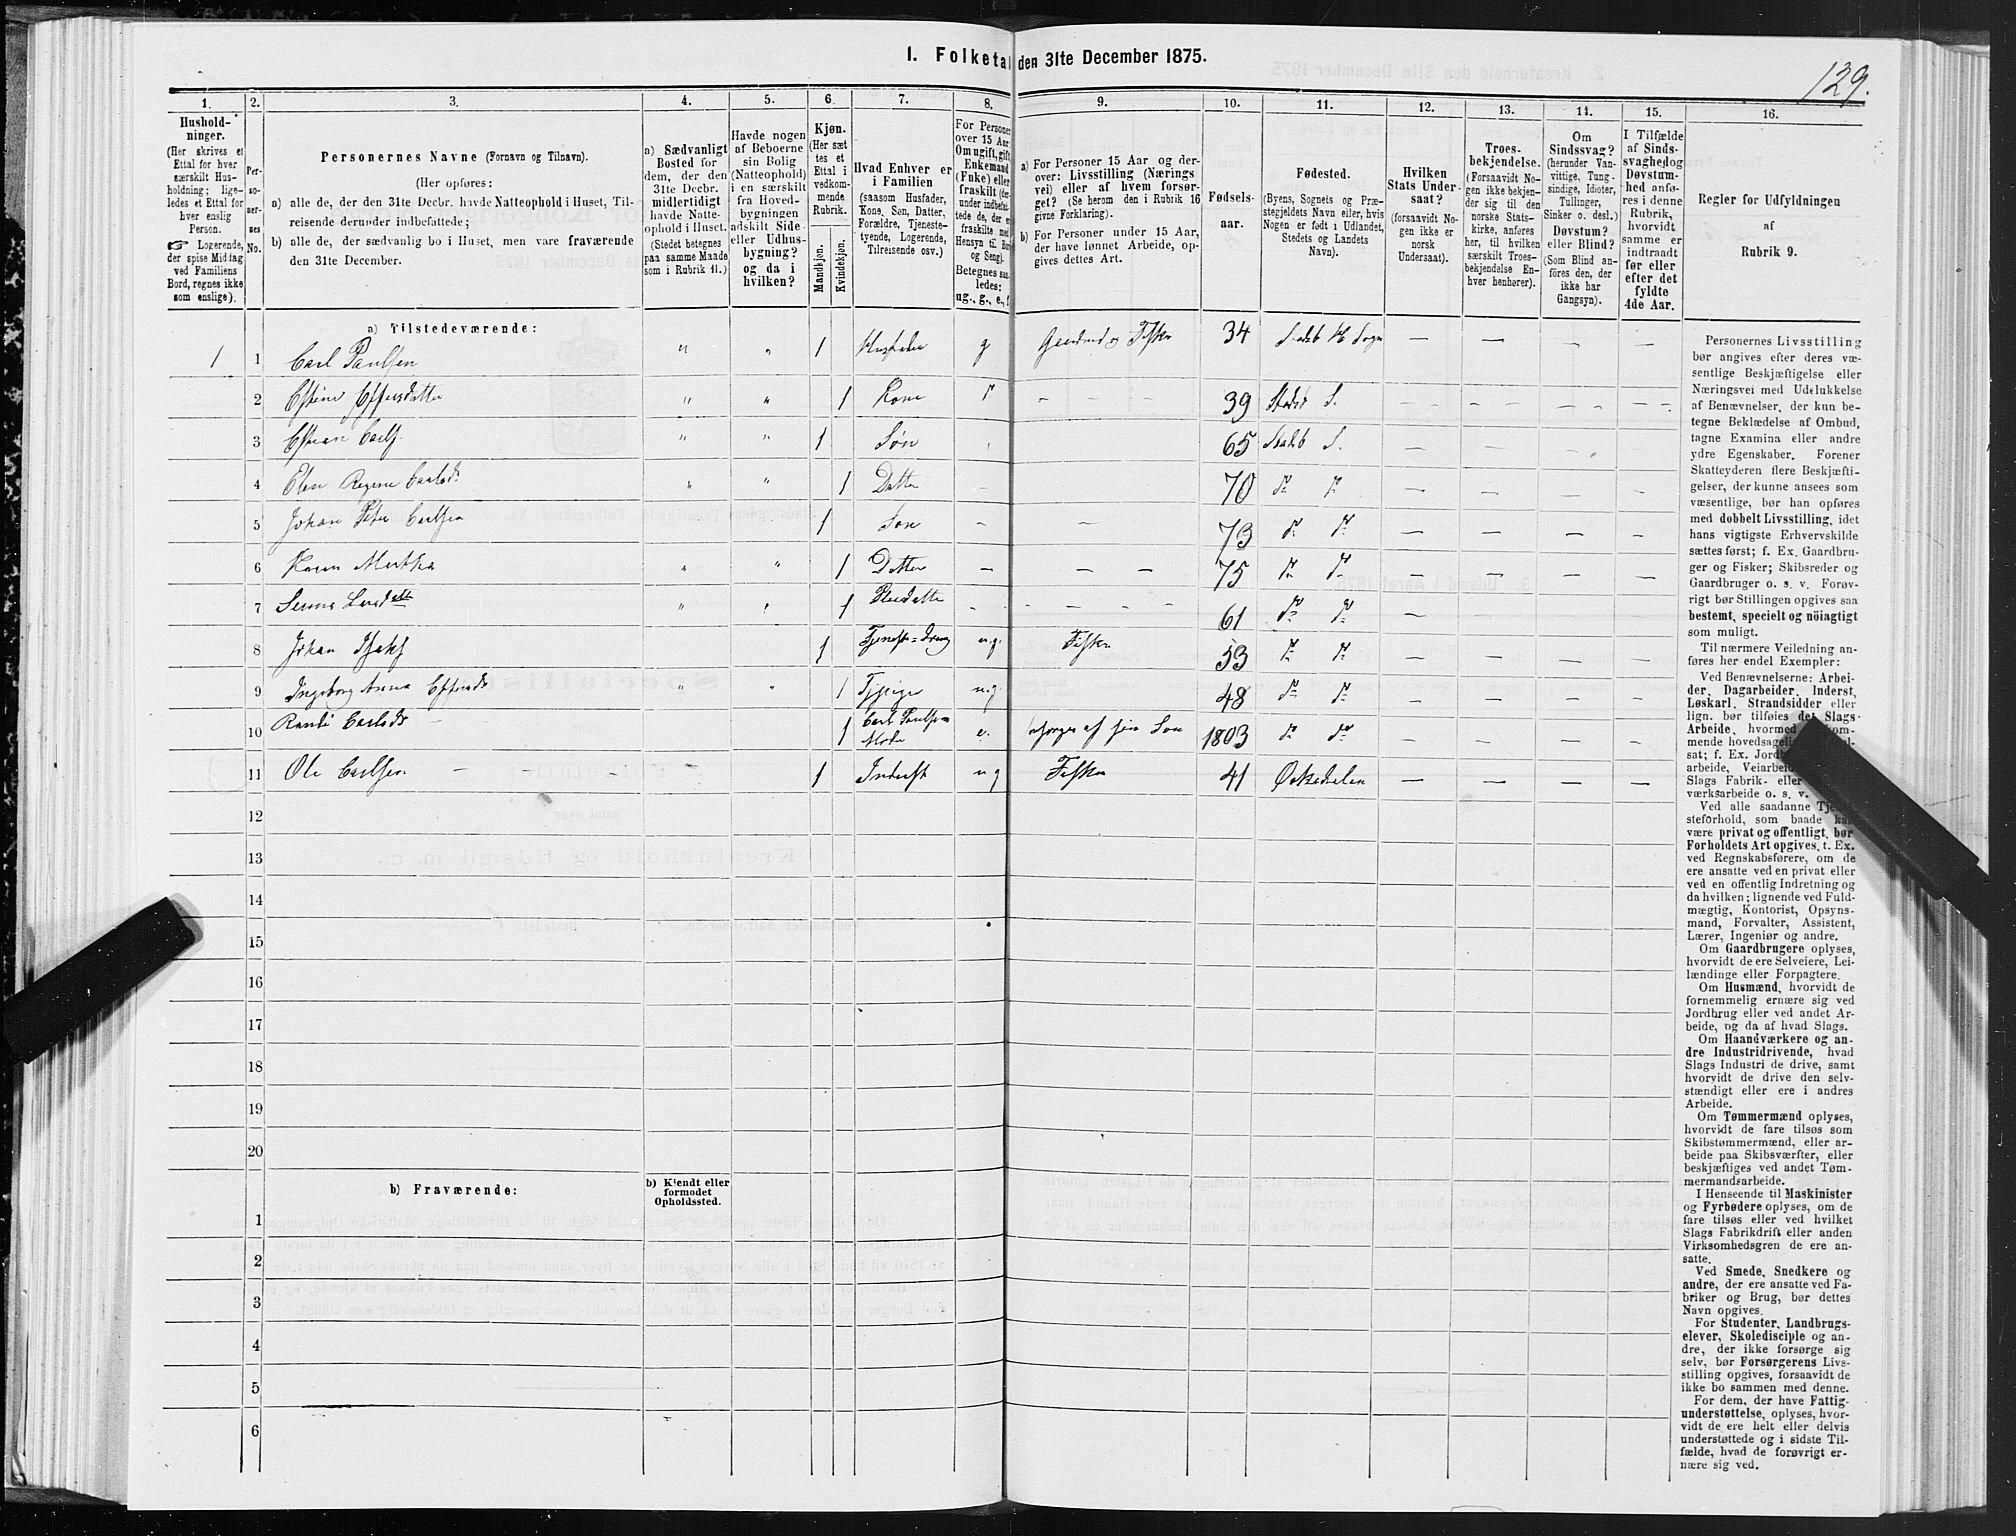 1. Folketal den 31te December 1875.
129.
1. 2. 3. 4. 5. 6. 7. 8. 9. 10. 11. 12. 13. 14. 15. 16.
Hushold-
ninger.
(Her skrives et
Ettal for hver
særskilt Hus-
holdning; lige-
ledes et Ettal for
hver enslig
Person.
☞ Logerende,
der spise Middag
ved Familiens
Bord, regnes ikke
som enslige).
Per-
so-
ner-
nes
No.
Personernes Navne (Fornavn og Tilnavn).
(Her opføres:
a) alle de, der den 31te Decbr. havde Natteophold i Huset, Til-
reisende derunder indbefattede;
b) alle de, der sædvanlig bo i Huset, men vare fraværende
den 31te December.
a) Sædvanligt
Bosted for
dem, der den
31te Decbr.
midlertidigt
havde Natte-
ophold i Huset.
(Stedet betegnes
paa samme Maade
som i Rubrik 11.)
Havde nogen
af Beboerne
sin Bolig
(Natteophold)
i en særskilt
fra Hoved-
bygningen
adskilt Side-
eller Udhus-
bygning?
og da i
hvilken?
Kjøn.
(Her sæt-
tes et
Ettal i
vedkom-
mende
Rubrik.
Mandkjøn.
Kvindekjøn.
Hvad Enhver er
i Familien
(saasom Husfader,
Kone, Søn, Datter,
Forældre, Tjeneste-
tyende, Logerende,
Tilreisende osv.)
For Personer
over 15 Aar:
Om ugift, gift,
Enkemand
(Enke) eller
fraskilt
Betegnes saa-
ledes:
ug., g., e., f.
a) For Personer 15 Aar og der-
over: Livsstilling (Nærings-
vei) eller af hvem forsør-
get? (Se herom den i Rubrik 16
givne Forklaring).
b) For Personer under 15 Aar,
der have lønnet Arbeide, op-
gives dettes Art.
Fødsels-
aar.
Fødested.
(Byens, Sognets og Præ-
stegjeldets Navn eller, hvis
Nogen er født i Udlandet,
Stedets og Landets
Navn).
Hvilken
Stats Under-
saat?
(forsaavidt No-
gen ikke er
norsk
Undersaat).
Troes-
bekjendelse.
(Forsaavidt No-
gen ikke bekjen-
der sig til den
norske Stats-
kirke, anføres
her, til hvilken
særskilt Troes-
bekjendelse En-
hver henhører).
Om
Sindssvag?
(herunder Van-
vittige, Tung-
sindige, Idioter,
Tullinger,
Sinker o. desl.)
Døvstum?
eller Blind?
(Som Blind an-
føres den, der
ikke har
Gangsyn).
I Tilfælde
af Sinds-
svaghed og
Døvstum-
hed anfø-
res i denne
Rubrik,
hvorvidt
samme er
indtraadt
før eller
efter det
fyldte
4de Aar.
Regler for Udfyldningen
af
Rubrik 9.
a) Tilstedeværende:
1 1 Carl Paulsen " " 1 Husfader g Gaardmd og Fisker 34 Stadsb H Sogn — — — —
2 " " 1 Kone 39 Stadsb S. — — — —
3 " " 1 Søn 65 Stadsb S. — —
4 Elen Regine Carlsdt " " 1 Datter — 70 do do — — — —
5 Johan Peter Carlsen 1 Søn — — 73 do do — — — —
6 Karen Martha " " 1 Datter — — — 75 do do — — — —
7 " " 1 Pleiedatter 61 do do — — — —
8 Johan 1 Tjeneste-Dreng u.g. Fisker 53 do do — — — —
9 Ingeborg Anna " " 1 Tjpige u.g. 48 do do — — — —
10 Carlsdt 1 Carl Paulsens
Moder e. forsørges af sin Søn 1803 do do — — — —
11 Ole Carlsen — 1 Inderst u g Fisker 41 Orkedalen — — — —
12
13
14
15
16
17
18
19
20
b) Fraværende:
b) Kjendt eller
formodet
Opholdssted.
1
2
3
4
5
6
Personernes Livsstilling
bør angives efter deres væ-
sentlige Beskjæftigelse eller
Næringsvei med Udelukkelse
af Benævnelser, der kun be-
tegne Beklædelse af Ombud,
tagne Examina eller andre
ydre Egenskaber. Forener
Skatteyderen flere Beskjæfti-
gelser, der kunne ansees som
væsentlige, bør han opføres
med dobbelt Livsstilling, idet
hans vigtigste Erhvervskilde
sættes først; f. Ex. Gaardbru-
ger og Fisker; Skibsreder og
Gaardbruger o. s. v. Forøv-
rigt bør Stillingen opgives saa
bestemt, specielt og nöiagtigt
som muligt.
Til nærmere Veiledning an-
føres her endel Exempler:
Ved Benævnelserne: Arbei-
der, Dagarbeider, Inderst,
Løskarl, Strandsidder eller
lign. bør tilføies det Slags
Arbeide, hvormed
mende hovedsagelig
sat; f. Ex.
arbeide, Veiarbeide
Slags Fabrik- eller
værksarbeide o. s. v.
Ved alle saadanne Tjene-
steforhold, som baade kan
være privat og offentligt, bør
Forholdets Art opgives, t. Ex.
ved Regnskabsførere, om de
ere ansatte ved en privat eller
ved en offentlig Indretning og
da hvilken; lignende ved Fuld-
mægtig, Kontorist, Opsyns-
mand, Forvalter, Assistent,
Lærer, Ingeniør og andre.
Om Gaardbrugere oplyses,
hvorvidt de ere Selveiere, Lei-
lændinge eller Forpagtere.
Om Husmænd, hvorvidt de
fornemmelig ernære sig ved
Jordbrug eller ved andet Ar-
beide, og da af hvad Slags.
Om Haandværkere og an-
dre Industridrivende, hvad
Slags Industri de drive, samt
hvorvidt de drive den selv-
stændigt eller ere i andres
Arbeide.
Om Tømmermænd oplyses,
hvorvidt de fare tilsøs som
Skibstømmermænd, eller ar-
beide paa Skibsværfter, eller
beskjæftiges ved andet Tøm-
mermandsarbeide.
I Henseende til Maskinister
og Fyrbødere oplyses, om de
fare tilsøs eller ved hvilket
Slags Fabrikdrift eller anden
Virksomhedsgren de ere an-
satte.
Ved Smede, Snedkere og
andre, der ere ansatte ved Fa-
briker og Brug, bør dettes
Navn opgives.
For Studenter, Landbrugs-
elever, Skoledisciple og an-
dre, der ikke forsørge sig
selv, bør Forsørgerens Livs-
stilling opgives, forsaavidt de
ikke bo sammen med denne.
For dem, der have Fattig-
understøttelse, oplyses, hvor-
vidt de ere helt eller delvis
understøttede og i sidste Til-
fælde, hvad de forøvrigt er-
nære sig ved.